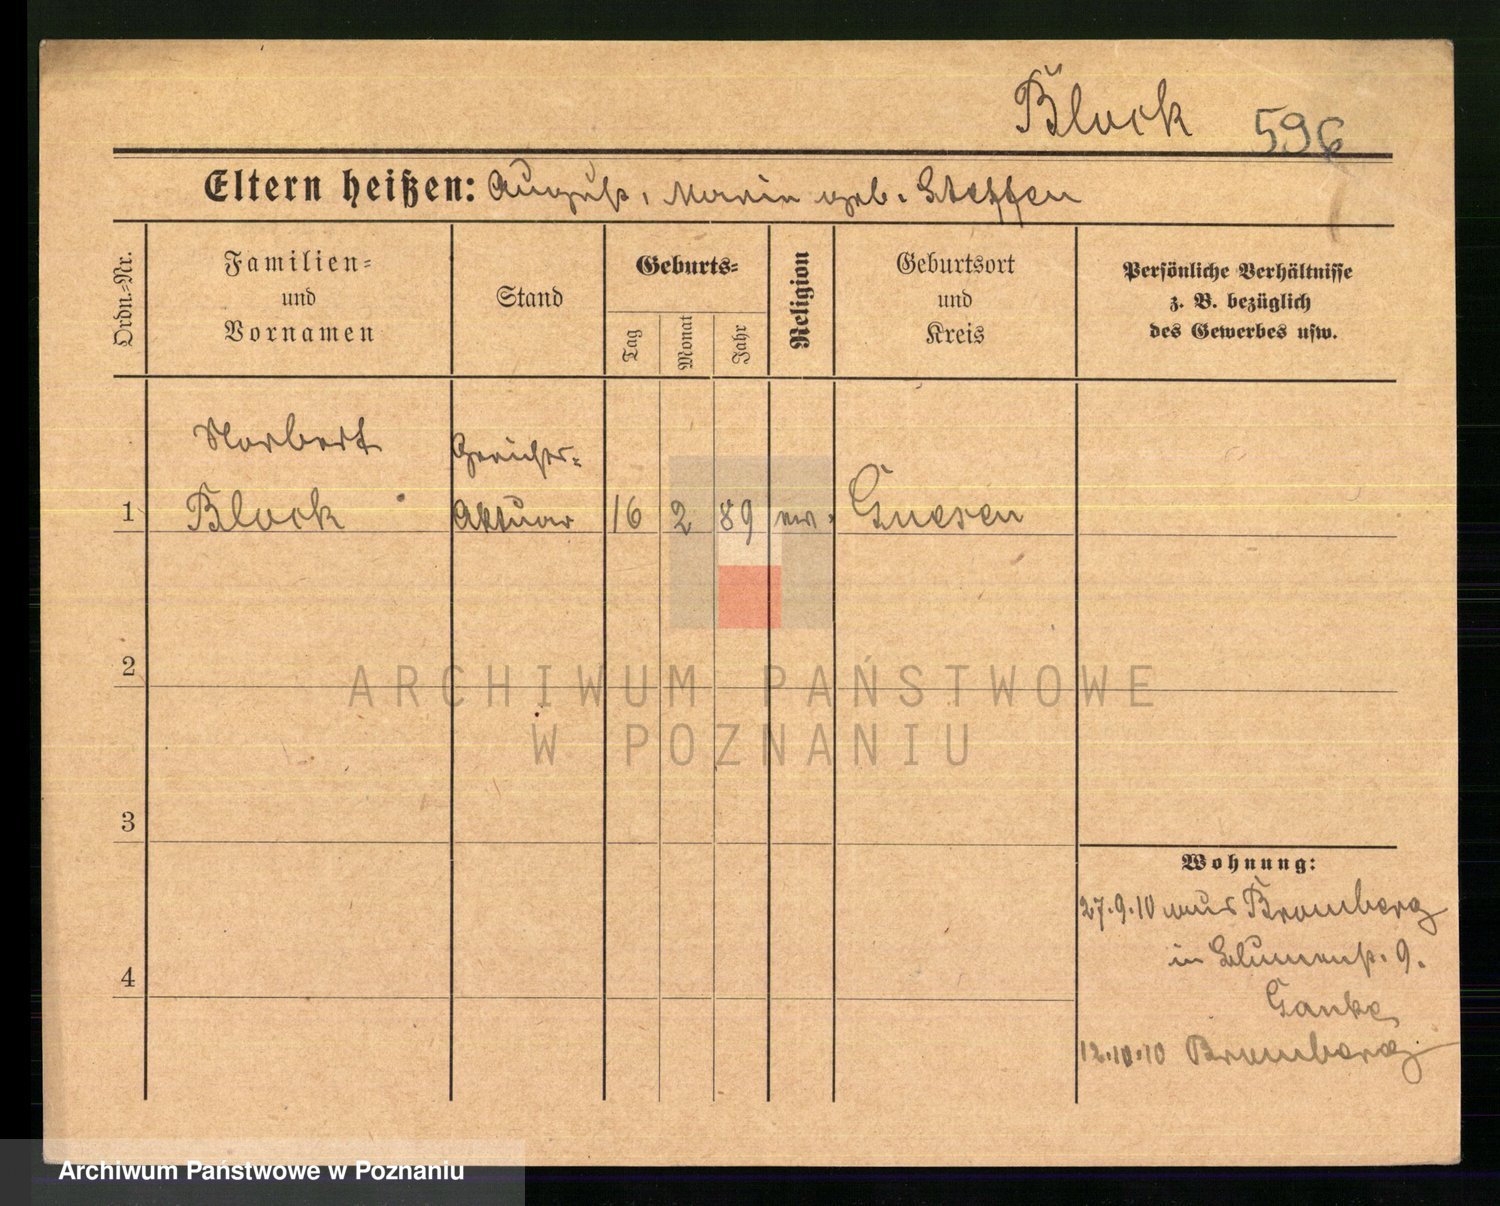 Block 596
Eltern heißen: August, Maria geb. Steffen
Ordn.-Nr.
Familien-
und
Vornamen
Stand
Geburts-
Tag
Monat
Jahr
Religion
Geburtsort
und
Kreis
Persönliche Verhältnisse
z. B. bezüglich
des Gewerbes usw.
Norbert Gerichts-
1 Block Aktuar 16 2 89 ev. Gnesen
2
ARCHIWUM PAŃSTWOWE
W POZNANIU
3
Wohnung:
27.9.10 aus Bromberg
in Blumenst. 9.
4
12.10.10 Bromberg
Archiwum Państwowe w Poznaniu